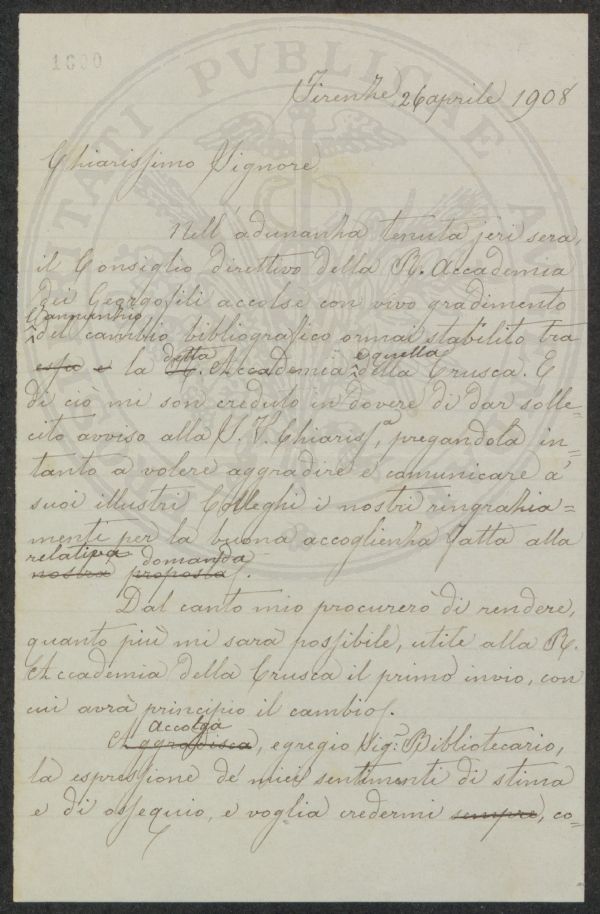 1800
Firenze, 26 aprile 1908
Chiarissimo Signore
Nell'adunanza tenuta jeri sera,
il Consiglio direttivo della R. Accademia
dei Georgofili accolse con vivo gradimento
l'annunzio
del cambio bibliografico ormai stabilito tra
detta e quella
essa e la R. Accademia della Crusca. E
di ciò mi son creduto in dovere di dar solle=
cito avviso alla S. V. Chiariss.ª, pregandola in=
tanto a volere aggradire e comunicare a'
suoi illustri Colleghi i nostri ringrazia=
menti per la buona accoglienza fatta alla
relativa domanda
nostra proposta.
Dal canto mio procurerò di rendere,
quanto più mi sarà possibile, utile alla R.
Accademia della Crusca il primo invio, con
cui avrà principio il cambio.
Accolga
Aggradisca, egregio Sig.r Bibliotecario,
la espressione de' miei sentimenti di stima
e di ossequio, e voglia credermi sempre, co=
PVBLICAE